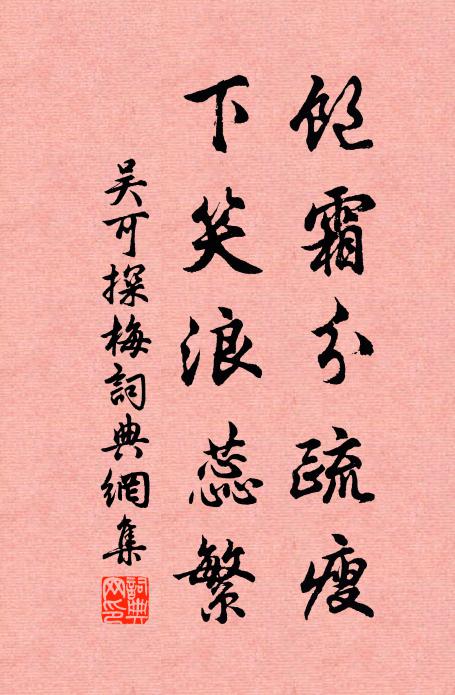 飽霜分疏瘦
下笑浪蕊繁
吳可探梅詞典網集
詞典網印